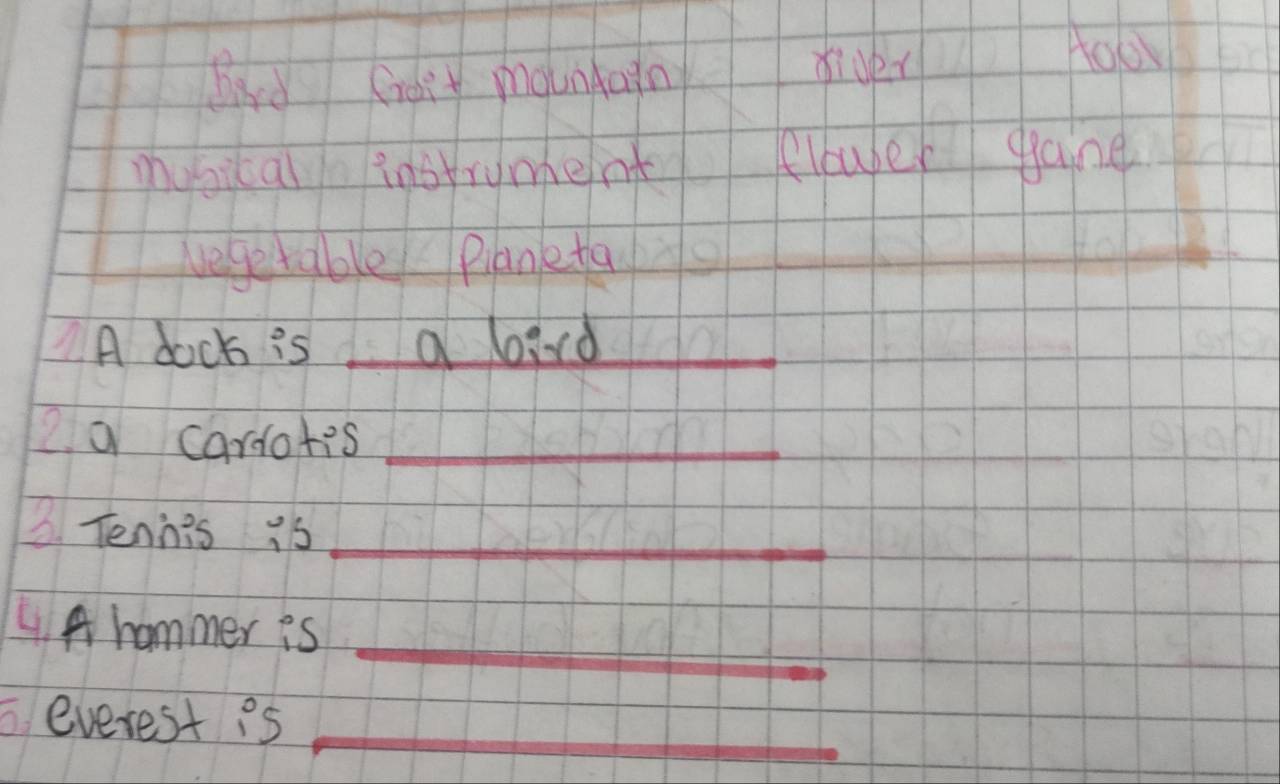 Bird fruit mountain river tool
musical instrument flower game
vegetable Planeta
1. A duck is a bird
2. a carrot is
3. Tennis is
4. A hammer is
5. everest is